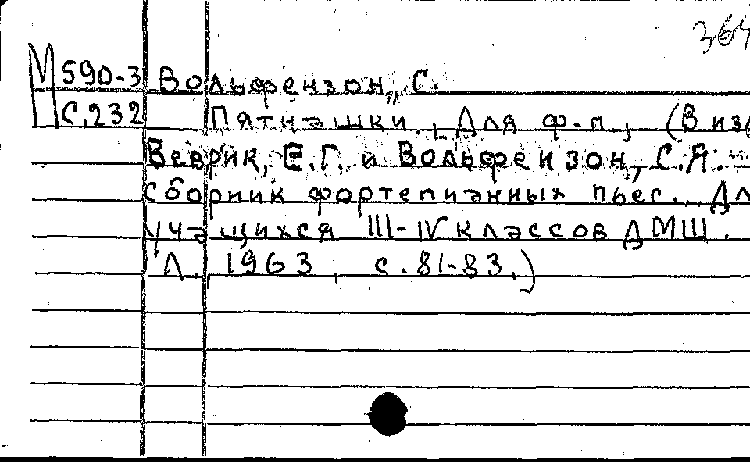 364
М590-3 Вольфензон, С.
С.232 Пятнашки. Для ф.-п., (В изд
Веврик, Е.Г. и Вольфензон, С.Я.
Сборник фортепианных пьес. Дл
учащихся III-IV классов ДМШ.
Л., 1963, с.81-83.)